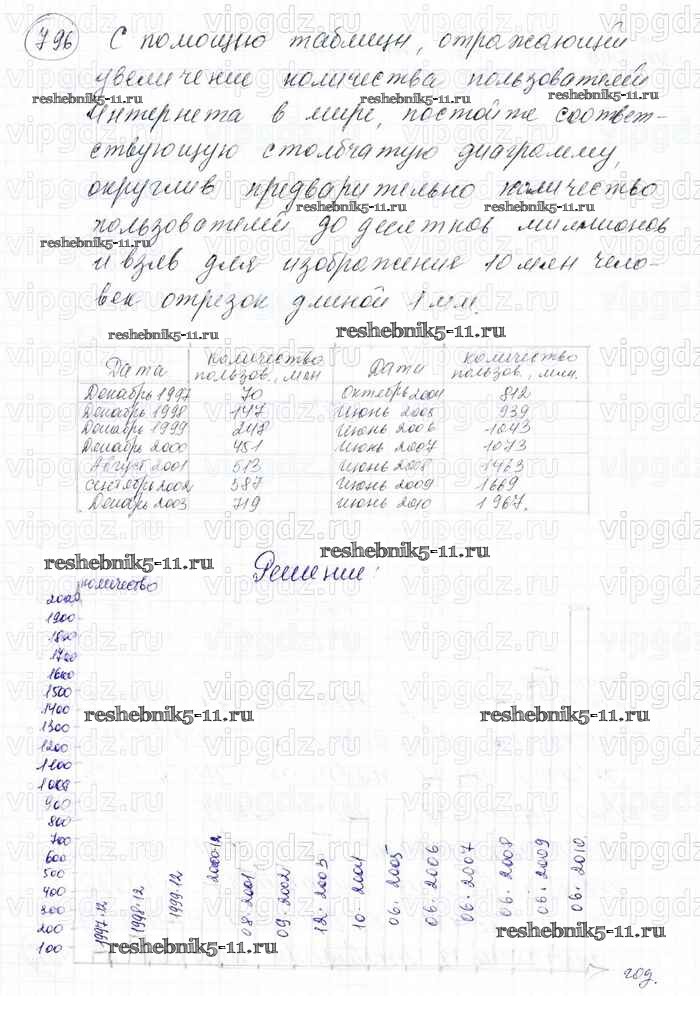 796
С помощью таблицы, отражающей
увеличение количества пользователей
Интернета в мире, постойте соответ-
ствующую столбчатую диаграмму,
округлив предварительно количество
пользователей до десятков миллионов
и взяв для изображение 10 млн чело-
век отрезок длиной 1 мм.
reshebnik5-11.ru reshebnik5-11.ru
reshebnik5-11.ru reshebnik5-11.ru
reshebnik5-11.ru reshebnik5-11.ru
Дата количество пользов., млн Дати количество пользов., млн.
Декабрь 1997 70 Октябрь 2004 812
Декабрь 1998 147 Июнь 2005 939
Декабрь 1999 248 Июнь 2006 1043
Декабрь 2000 451 Июнь 2007 1073
Август 2001 513 Июнь 2008 1463
Сентябрь 2002 587 Июнь 2009 1669
Декабрь 2003 719 Июнь 2010 1967.
reshebnik5-11.ru reshebnik5-11.ru
Решение:
количество
2000
1900
1800
1700
1600
1500
1400
1300
1200
1100
1000
900
800
700
600
500
400
300
200
100
reshebnik5-11.ru reshebnik5-11.ru
1997.12
1998.12
1999.12
2000.12
08.2001
09.2002
12.2003
10.2004
06.2005
06.2006
06.2007
06.2008
06.2009
06.2010
reshebnik5-11.ru reshebnik5-11.ru
год.
vipgdz.ru